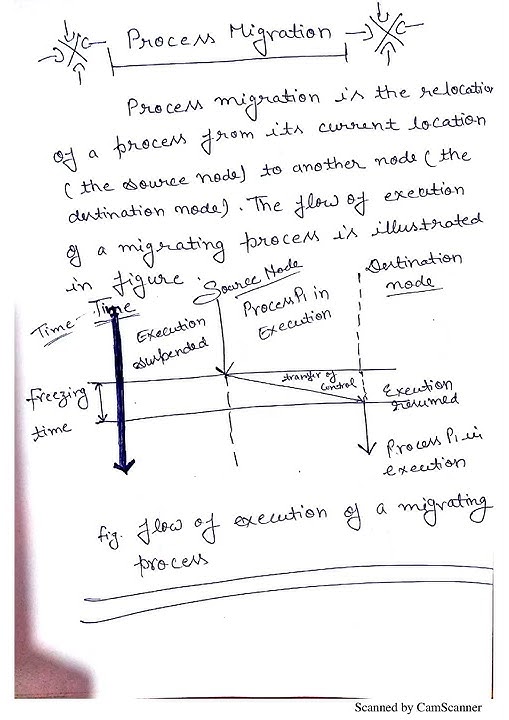 Process Migration
Process migration is the relocation
of a process from its current location
(the source node) to another node (the
destination node). The flow of exection
of a migrating process is illustrated
in figure.
Time
Time
Execution
suspended
Source Node
Process P1 in
Execution
Destination
node
freezing
time
transfer of
control
Exection
resumed
Process P1 in
exection
fig. flow of execution of a migrating
process
Scanned by CamScanner